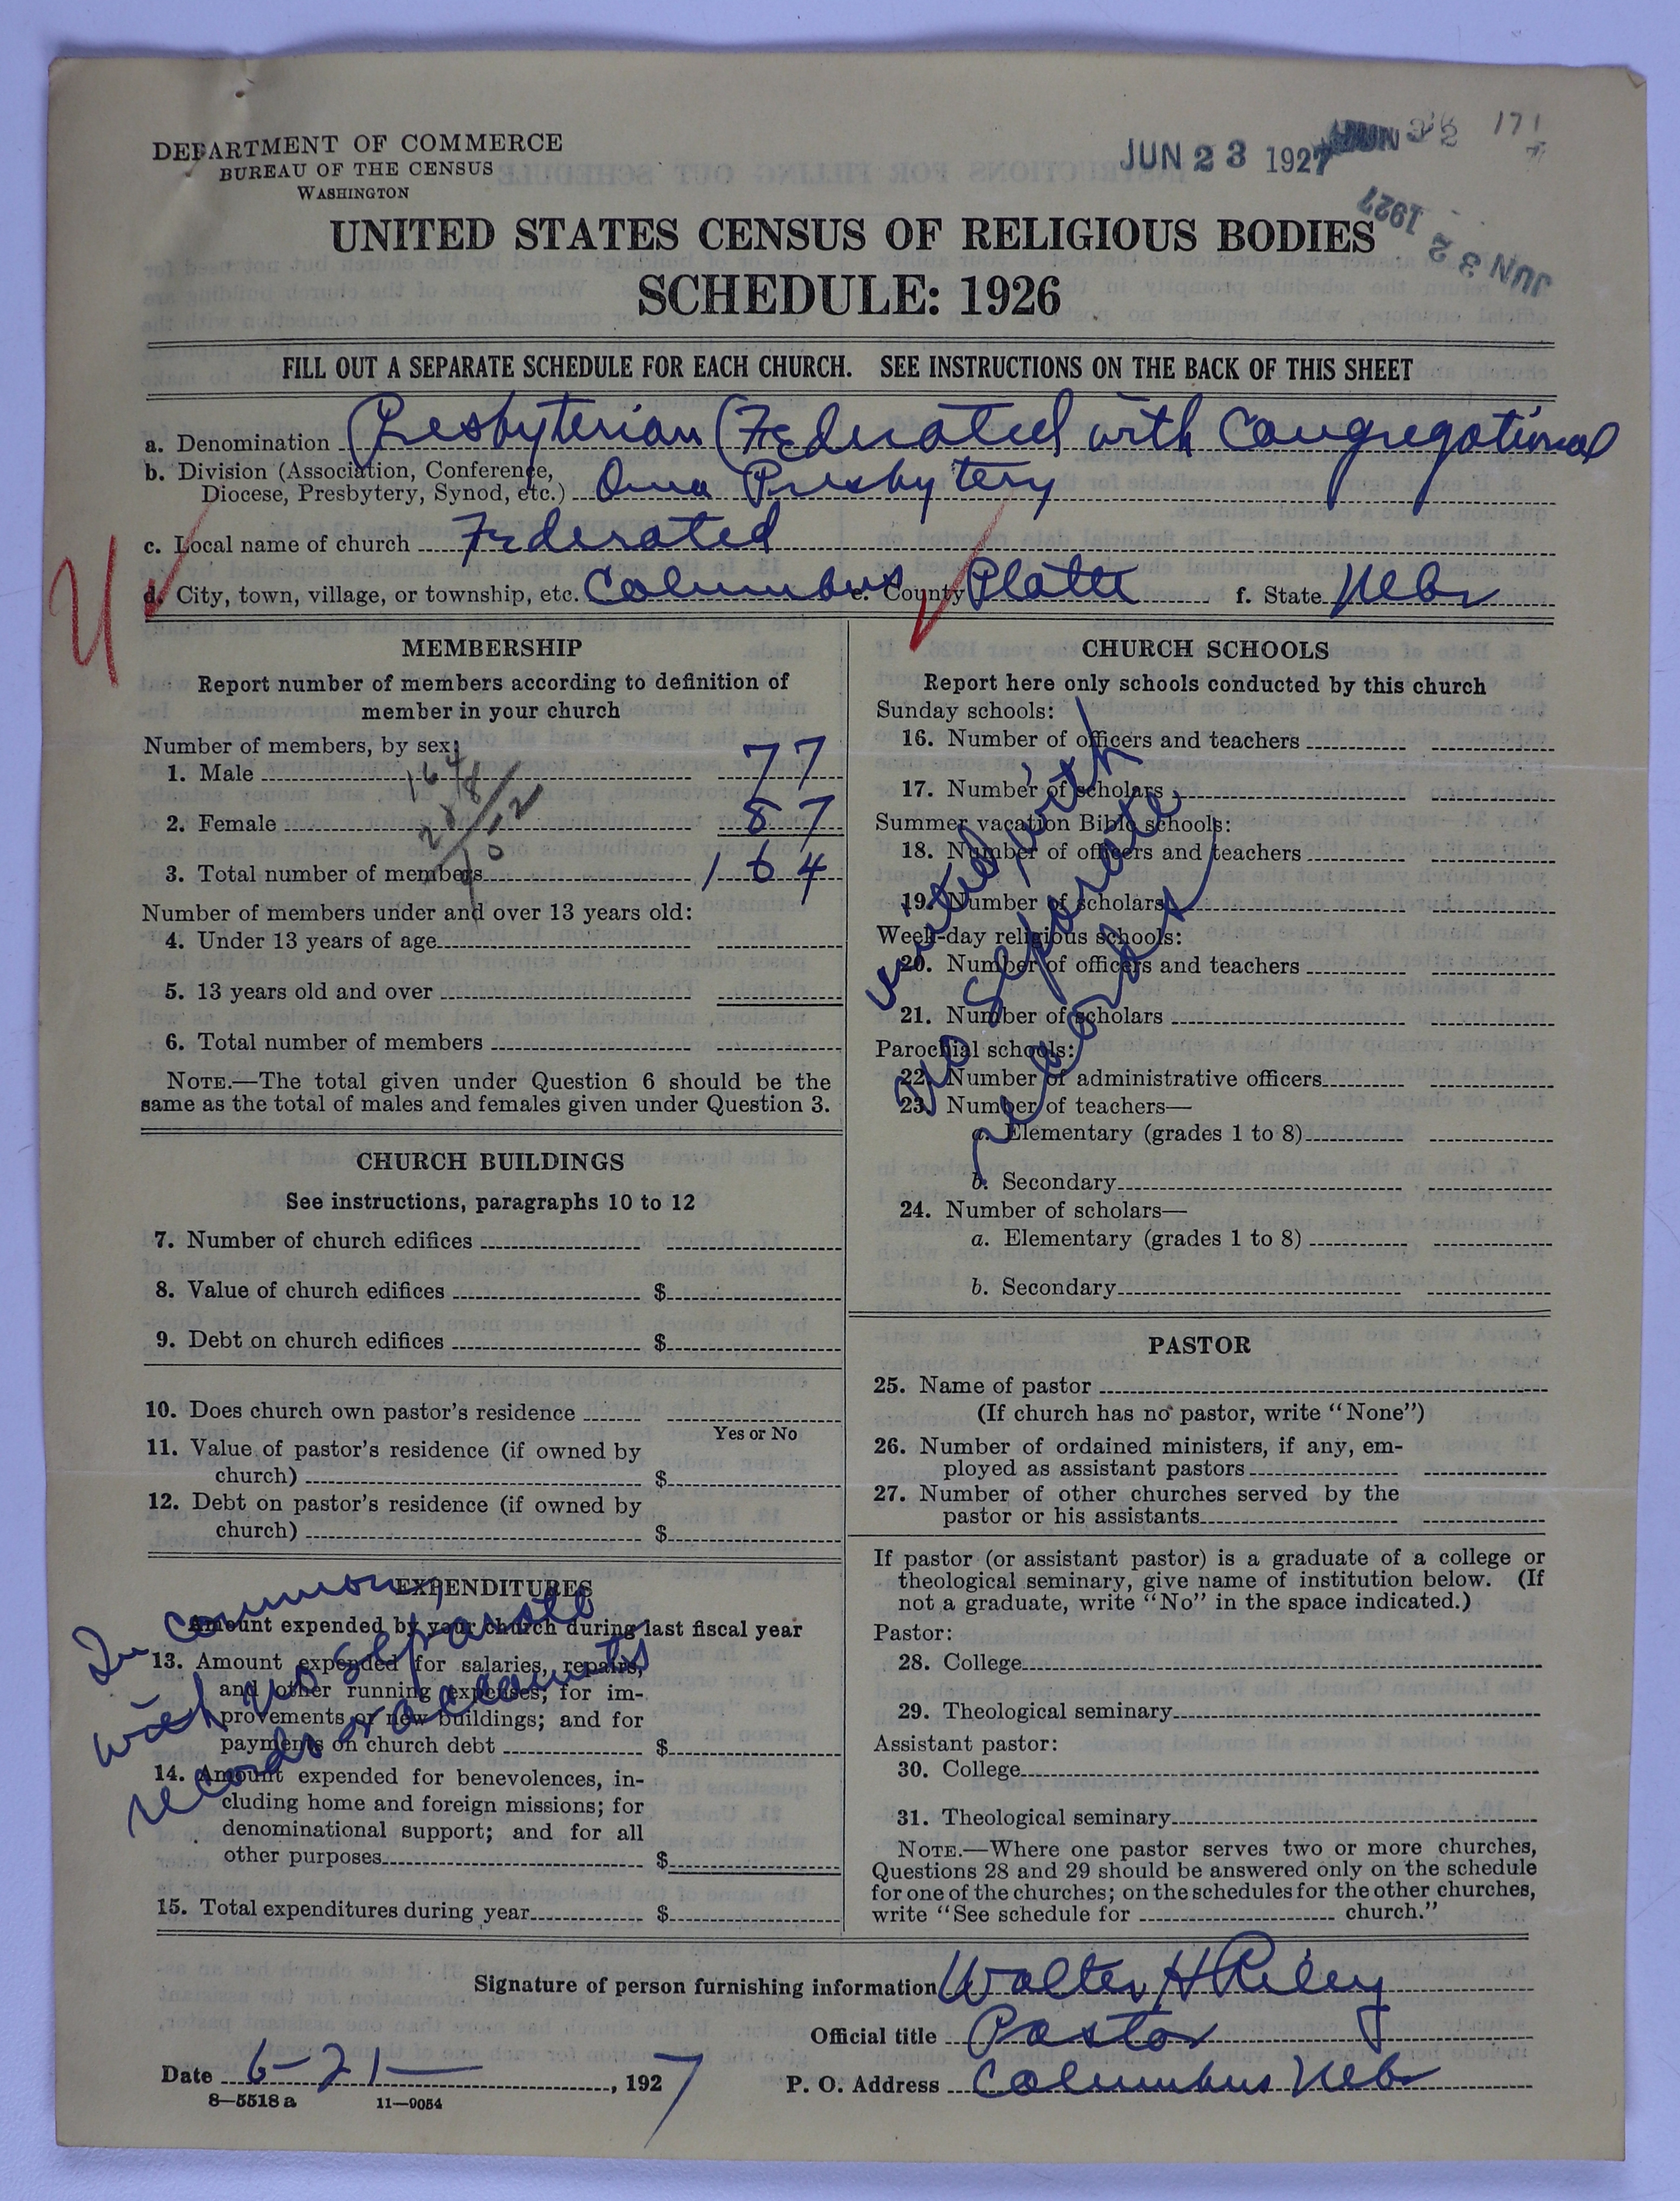 DEPARTMENT OF COMMERCE
BUREAU OF THE CENSUS
WASHINGTON
JUN 23 1927
171
JUN 1927
UNITED STATES CENSUS OF RELIGIOUS BODIES
SCHEDULE: 1926
FILL OUT A SEPARATE SCHEDULE FOR EACH CHURCH. SEE INSTRUCTIONS ON THE BACK OF THIS SHEET
a. Denomination Presbyterian (Federated with Congregational
b. Division (Association, Conference,
Diocese, Presbytery, Synod, etc.) Presbytery
c. Local name of church Federated
d. City, town, village, or township, etc. Columbus e. County Platte f. State Nebr
MEMBERSHIP
Report number of members according to definition of
member in your church
Number of members, by sex:
1. Male 77
164
2. Female 87
3. Total number of members 164
Number of members under and over 13 years old:
4. Under 13 years of age
5. 13 years old and over
6. Total number of members
NOTE.—The total given under Question 6 should be the
same as the total of males and females given under Question 3.
CHURCH BUILDINGS
See instructions, paragraphs 10 to 12
7. Number of church edifices
8. Value of church edifices $
9. Debt on church edifices $
10. Does church own pastor's residence
Yes or No
11. Value of pastor's residence (if owned by
church) $
12. Debt on pastor's residence (if owned by
church) $
EXPENDITURES
Amount expended by your church during last fiscal year
13. Amount expended for salaries, repairs,
and other running expenses; for im-
provements or new buildings; and for
payments on church debt $
14. Amount expended for benevolences, in-
cluding home and foreign missions; for
denominational support; and for all
other purposes $
15. Total expenditures during year $
In common,
with no separate
records or accounts
CHURCH SCHOOLS
Report here only schools conducted by this church
Sunday schools:
16. Number of officers and teachers
17. Number of scholars
Summer vacation Bible schools:
18. Number of officers and teachers
19. Number of scholars
Week-day religious schools:
20. Number of officers and teachers
21. Number of scholars
Parochial schools:
22. Number of administrative officers
23. Number of teachers—
a. Elementary (grades 1 to 8)
b. Secondary
24. Number of scholars—
a. Elementary (grades 1 to 8)
b. Secondary
united with
no separate
records
PASTOR
25. Name of pastor
(If church has no pastor, write "None")
26. Number of ordained ministers, if any, em-
ployed as assistant pastors
27. Number of other churches served by the
pastor or his assistants
If pastor (or assistant pastor) is a graduate of a college or
theological seminary, give name of institution below. (If
not a graduate, write "No" in the space indicated.)
Pastor:
28. College
29. Theological seminary
Assistant pastor:
30. College
31. Theological seminary
NOTE.—Where one pastor serves two or more churches,
Questions 28 and 29 should be answered only on the schedule
for one of the churches; on the schedules for the other churches,
write "See schedule for church."
Signature of person furnishing information Walter H Riley
Official title Pastor
Date 6-21- , 1927
P. O. Address Columbus Nebr
8—5518a 11—9054